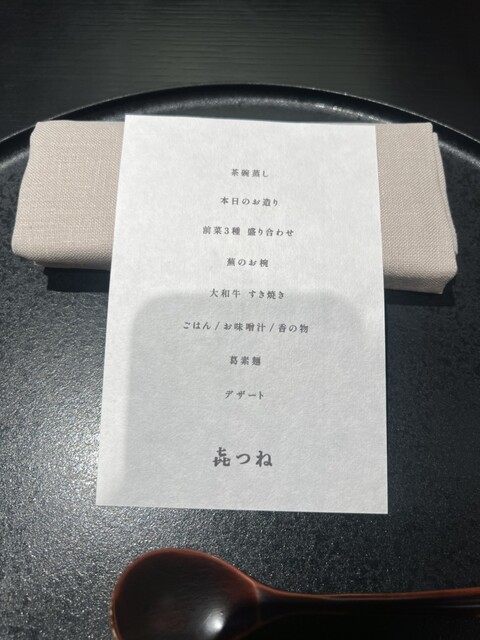 茶碗蒸し
本日のお造り
前菜3種 盛り合わせ
蕪のお椀
大和牛 すき焼き
ごはん/お味噌汁/香の物
葛素麺
デザート
㐂つね